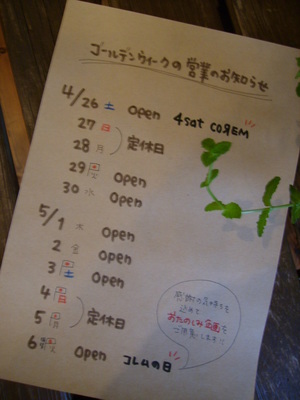 ゴールデンウィークの営業のお知らせ
4/26 土 Open 4sat COЯEM
27 日
28 月 定休日
29 火 Open
30 水 Open
5/1 木 Open
2 金 Open
3 土 Open
4 日
5 月 定休日
6 火 Open コレムの日
感謝の気持ちを
込めて
おたのしみ企画を
ご用意します!!